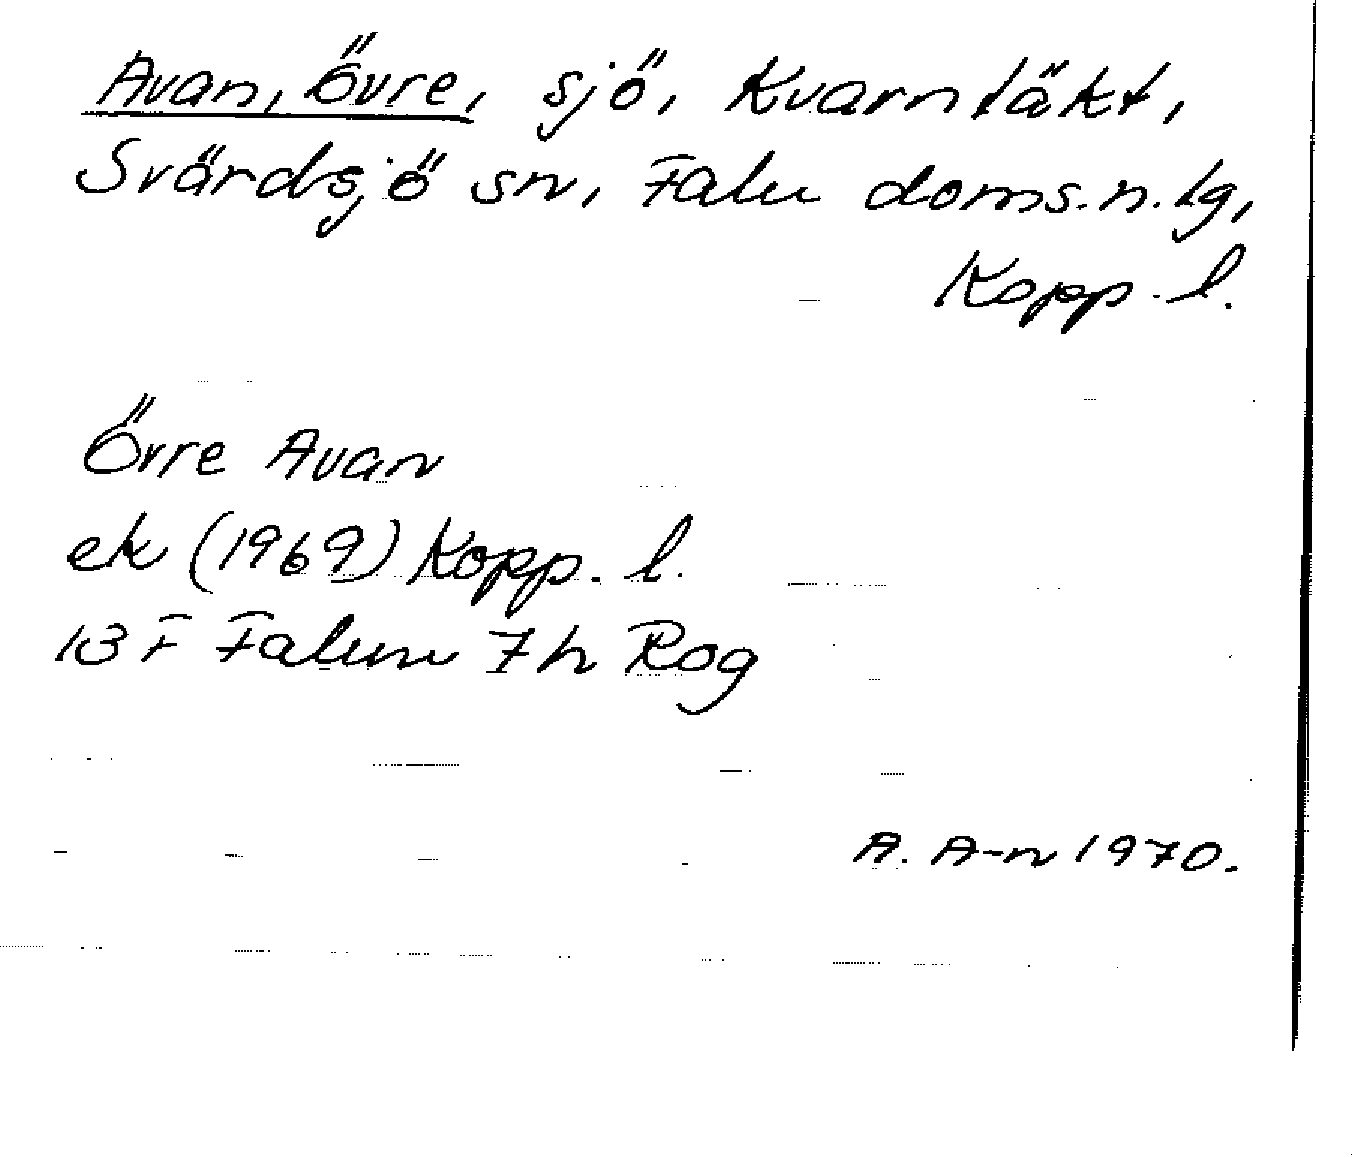 Avan, Övre, sjö, Kvarntäkt,
Svärdsjö sn, Falu doms.n.lg,
Kopp. l.
Övre Avan
ek (1969) Kopp. l.
13 F Falun 7h Rog
A. A-n 1970.